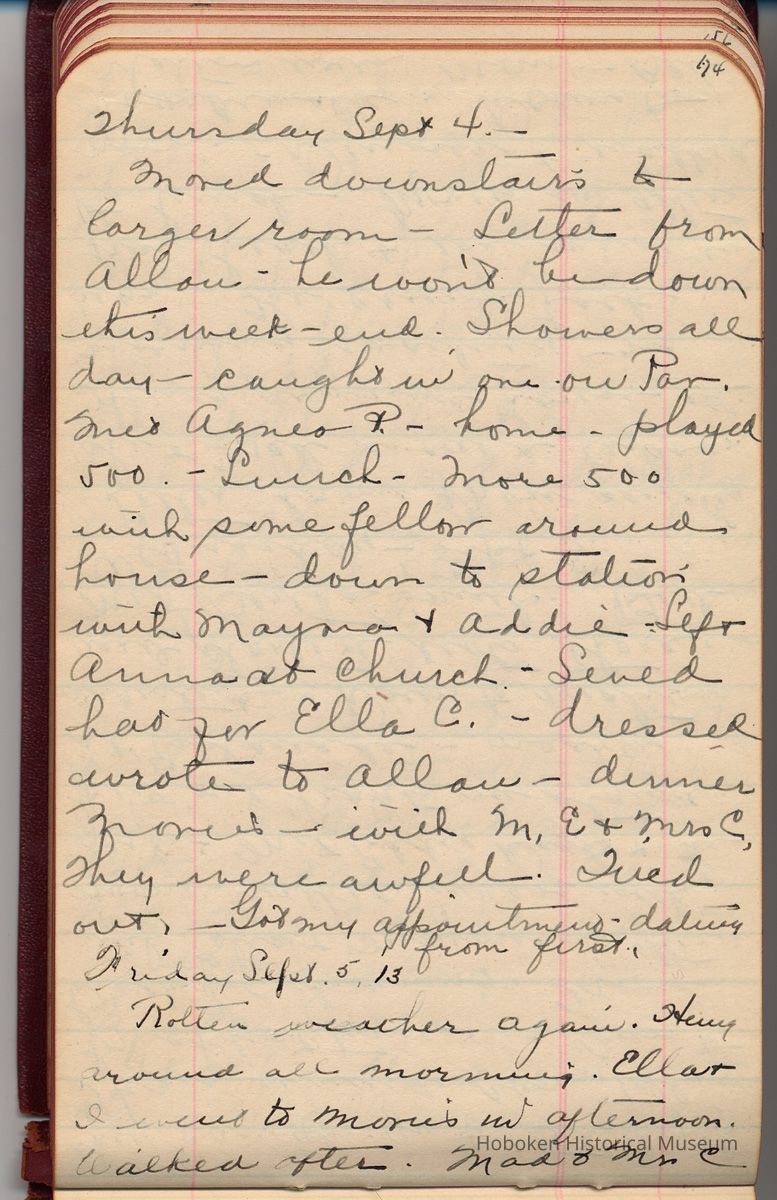 156
174
Thursday Sept 4. —
Moved downstairs to
larger room — Letter from
Allan - he won't be down
this week-end. Showers all
day — caught in one on Pav.
Met Agnes P. - home - played
500. - Lunch - More 500
with some fellow around
house — down to station
with Mayna & Addie - Left
Anna at church. - Sewed
hat for Ella C. - dressed
wrote to Allan — dinner
Movies — with M, E & Mrs C,
They were awful. Tired
out, — Got my appointment - dating
from first.
Friday Sept. 5, 13
Rotten weather again. Hung
around all morning. Ella &
I went to movies in afternoon.
Walked after. Mad & Mrs C
Hoboken Historical Museum